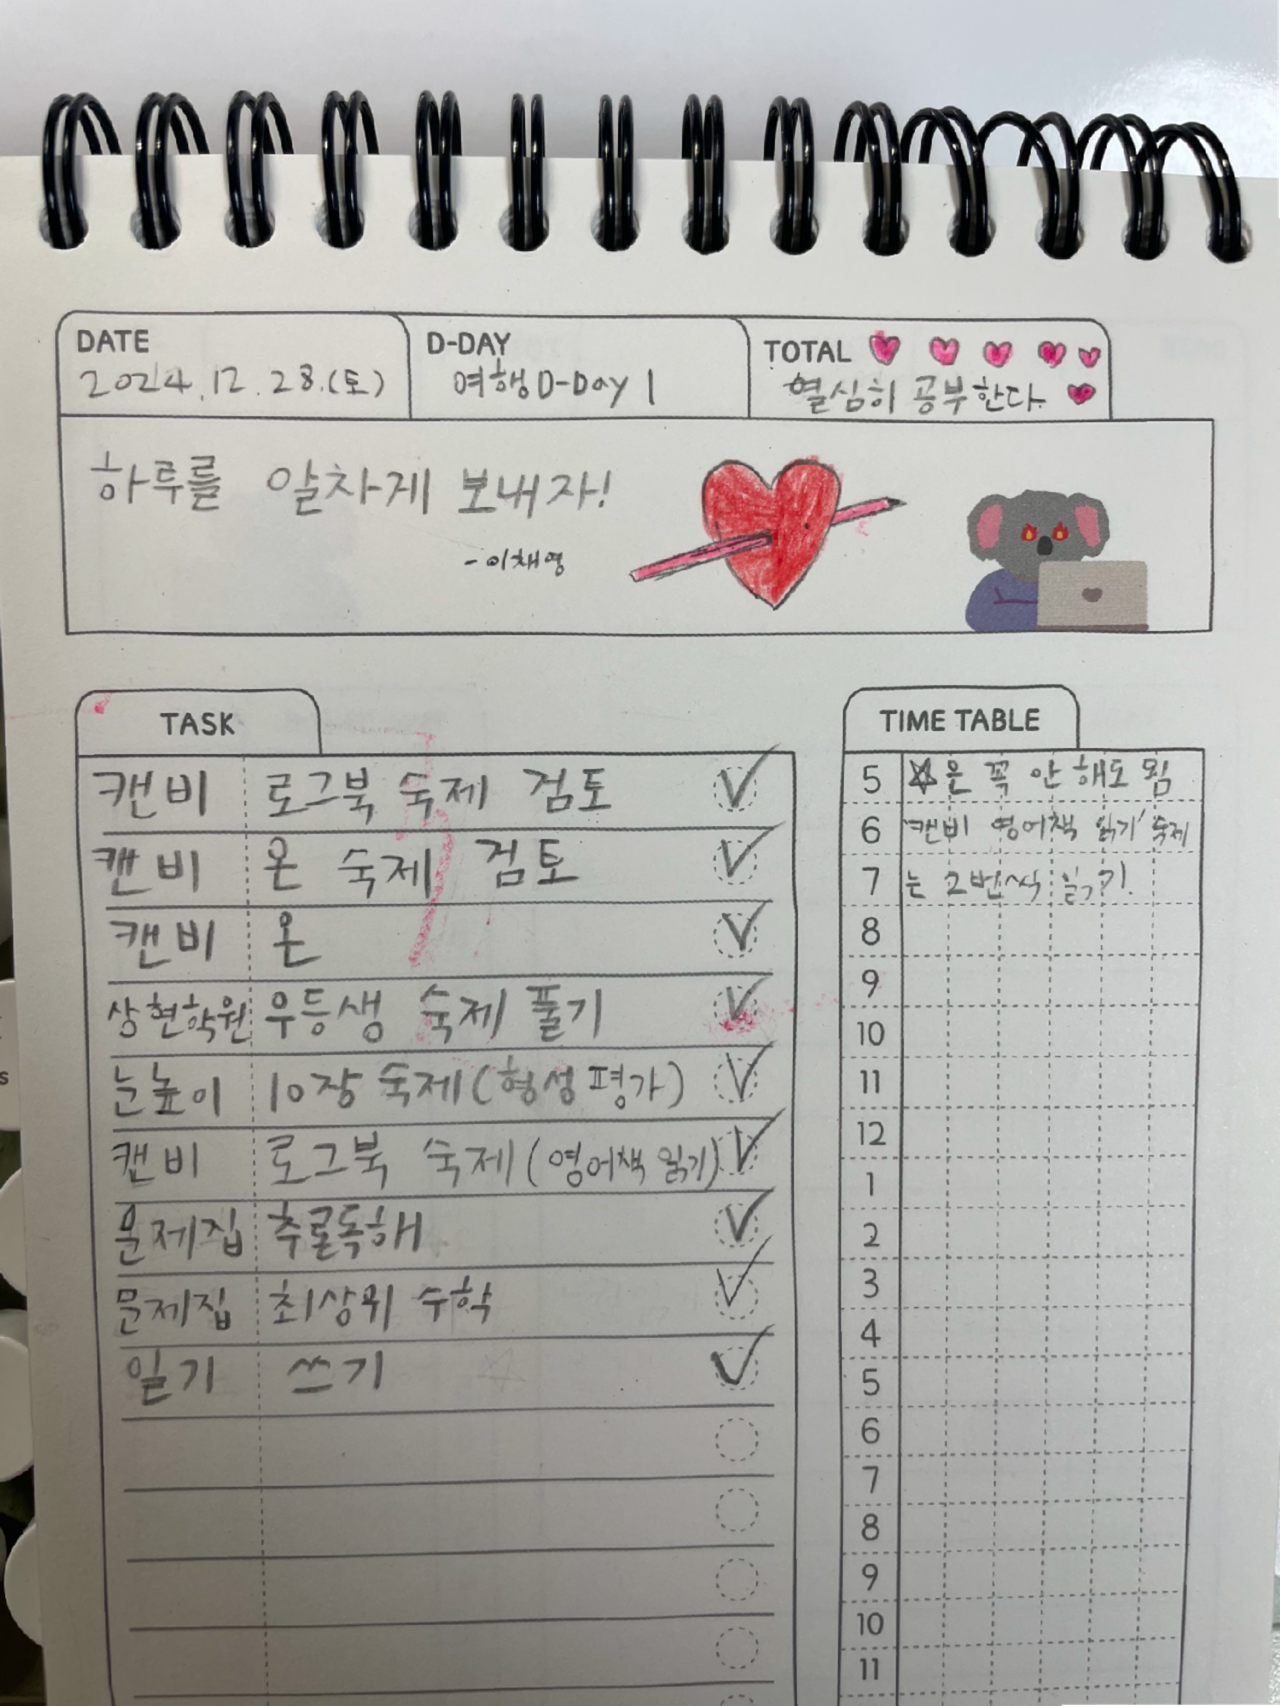 DATE
2024.12.28.(토)
D-DAY
여행 D-Day 1
TOTAL
열심히 공부한다.
하루를 알차게 보내자!
- 이채영
TASK
캔비 로그북 숙제 검토
캔비 온 숙제 검토
캔비 온
상현학원 우등생 숙제 풀기
눈높이 10장 숙제(형성평가)
캔비 로그북 숙제(영어책 읽기)
문제집 추론독해
문제집 최상위 수학
일기 쓰기
TIME TABLE
5 ☆은 꼭 안 해도 됨
6 '캔비 영어책 읽기' 숙제
7 는 2번씩 읽기!
8
9
10
11
12
1
2
3
4
5
6
7
8
9
10
11